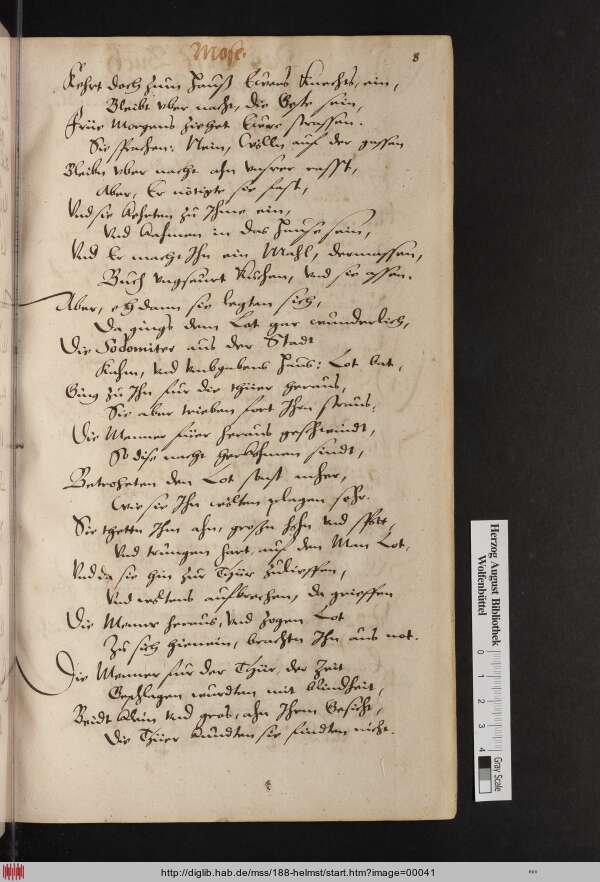 Mose.
8
Kehrt doch zum Hauß Eures Knechts, ein,
Bleibt vber nacht, die Geste sein,
Früe Morgens ziehet Eure strassen.
Sie sprachen: Nein, Wölln auf der gassen
Bleibn vber nacht ahn vnsrer rasst,
Aber, Er nötigte sie fast,
Vnd sie kehrten zu Ihme ein,
Vnd kahmen in das Hause sein,
Vnd Er macht Ihn ein Mahl, dermassen,
Buch vngseurt Kuchen, vnd sie assen.
Aber, eh dann sie legten sich,
Da gings dem Lot gar wunderlich,
Die Sodomiter aus der Stadt
Kahm, vnd vmbgabens Haus: Lot bat,
Ging zu Ihn fur die thüer heraus,
Sie aber trieben fort Ihrn straus,
Die Menner füer heraus geschwindt,
So dise nacht herkohmen sindt,
Betroheten den Lot sonst mher,
Wie sie Ihn wolten plagen sehr.
Sie thetten Ihm ahn, großn hohn vnd spott,
Vnd trungen hart, auf den Man Lot.
Vnd da sie hin zur Thür zulieffen,
Vnd woltens aufbrechen, da grieffen
Die Menner heraus, vnd zogen Lot
Zu sich hienein, brachtn Ihn aus not.
Die Menner fur der Thür, der Zeit
Geschlagen wurdten mit blindheit,
Beidt klein vnd gros, ahn Ihrem Gesicht,
Die Thüer kundten sie findten nicht.
Herzog August Bibliothek
Wolfenbüttel
0 1 2 3 4
Gray Scale
http://diglib.hab.de/mss/188-helmst/start.htm?image=00041